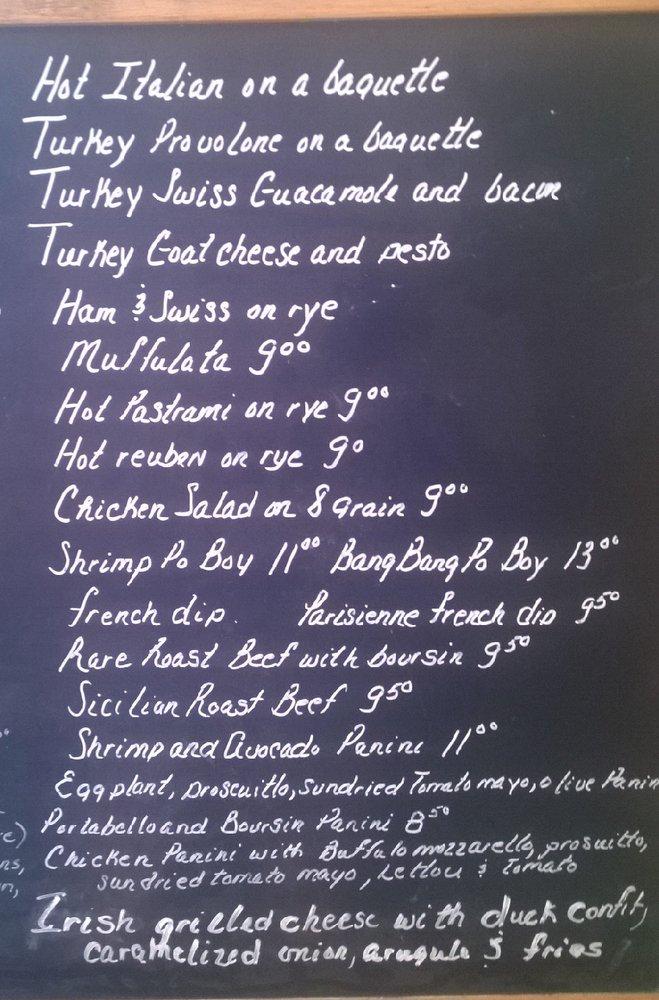 Hot Italian on a baquette
Turkey Provolone on a baquette
Turkey Swiss Guacamole and bacon
Turkey Goat cheese and pesto
Ham & Swiss on rye
Muffulata 9⁰⁰
Hot Pastrami on rye 9⁰⁰
Hot reuben on rye 9⁰
Chicken Salad on 8 Grain 9⁰⁰
Shrimp Po Boy 11⁰⁰ Bang Bang Po Boy 13⁰⁰
french dip. Parisienne french dip 9⁵⁰
Rare Roast Beef with boursin 9⁵⁰
Sicilian Roast Beef 9⁵⁰
Shrimp and Avocado Panini 11⁰⁰
Eggplant, proscuitto, sundried Tomato mayo, olive Panin
Portabello and Boursin Panini 8⁵⁰
Chicken Panini with Buffalo mozzarella, prosuitto,
sundried tomato mayo, Lettou & Tomato
Irish grilled cheese with duck confit,
caramelized onion, arugula & fries